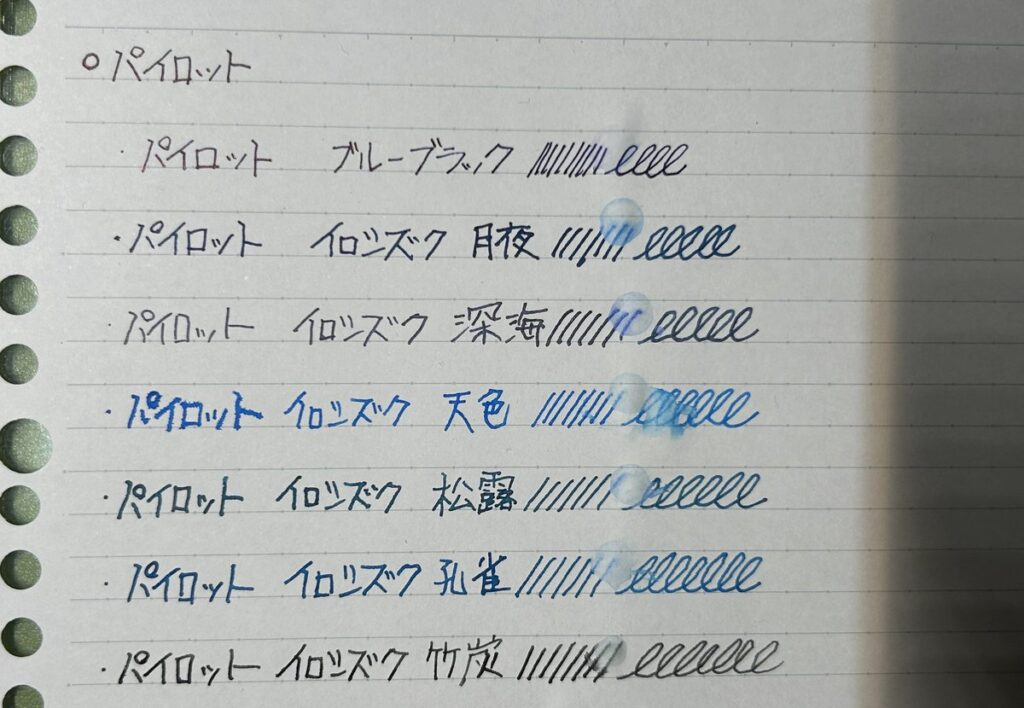 ○パイロット
・パイロット ブルーブラック
・パイロット イロシズク 月夜
・パイロット イロシズク 深海
・パイロット イロシズク 天色
・パイロット イロシズク 松露
・パイロット イロシズク 孔雀
・パイロット イロシズク 竹炭